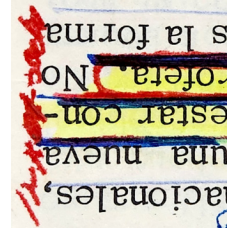 nacionales,
una nueva
estar con-
rofeta. No
s la forma